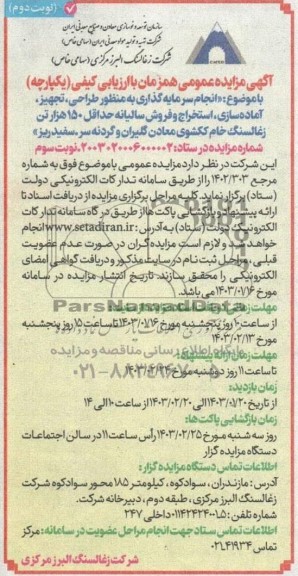 (نوبت دوم)
سازمان توسعه و نوسازی معادن و صنایع معدنی ایران
شرکت تهیه و تولید مواد معدنی ایران (سهامی خاص)
شرکت زغالسنگ البرز مرکزی (سهامی خاص)
آگهی مزایده عمومی همزمان با ارزیابی کیفی (یکپارچه)
با موضوع: «انجام سرمایه گذاری به منظور طراحی، تجهیز،
آماده سازی، استخراج و فروش سالیانه حداقل ۱۵۰ هزار تن
زغالسنگ خام ککشوی معادن گلیران و گردنه سر ـ سفیدریز»
شماره مزایده در ستاد: ۲۰۰۳۰۲۰۰۰۶۰۰۰۰۰۲ - نوبت سوم
این شرکت در نظر دارد مزایده عمومی با موضوع فوق به شماره
مرجع ۱۴۰۲/۳۰۳ را از طریق سامانه تدارکات الکترونیکی دولت
(ستاد) برگزار نماید. کلیه مراحل برگزاری مزایده از دریافت اسناد تا
ارائه پیشنهاد و بازگشایی پاکت ها از طریق درگاه سامانه تدارکات
الکترونیک دولت (ستاد) به آدرس: www.setadiran.ir انجام
خواهد شد و لازم است مزایده گران در صورت عدم عضویت
قبلی، مراحل ثبت نام در سایت مذکور و دریافت گواهی امضای
الکترونیکی را محقق سازند. تاریخ انتشار مزایده در سامانه
مورخ ۱۴۰۳/۰۱/۱۶ می باشد.
ParsNamadData
از ساعت ۱۰ روز پنجشنبه مورخ ۱۴۰۳/۰۱/۱۶ تا ساعت ۱۵ روز پنجشنبه
مورخ ۱۴۰۳/۰۲/۱۳
پایگاه اطلاع رسانی مناقصه و مزایده
مهلت زمان ارائه پیشنهاد:
تا ساعت ۱۱ روز دوشنبه مورخ ۱۴۰۳/۰۲/۲۴
۰۲۱-۸۸۳۴۹۶۷۰
زمان بازدید:
از تاریخ ۱۴۰۳/۰۱/۲۰ الی ۱۴۰۳/۰۲/۲۰ از ساعت ۱۰ الی ۱۴
زمان بازگشایی پاکت ها:
روز سه شنبه مورخ ۱۴۰۳/۰۲/۲۵ رأس ساعت ۱۱ در سالن اجتماعات
دستگاه مزایده گزار
اطلاعات تماس دستگاه مزایده گزار:
آدرس: مازندران، سوادکوه، کیلومتر ۱۸۵ محور سوادکوه شرکت
زغالسنگ البرز مرکزی، طبقه دوم، دبیرخانه شرکت.
شماره تلفن: ۰۱۱۴۲۴۲۴۰۰۱،۵ داخلی ۲۴۷
اطلاعات تماس ستاد جهت انجام مراحل عضویت در سامانه: مرکز
تماس ۰۲۱،۴۱۹۳۴
شرکت زغالسنگ البرز مرکزی